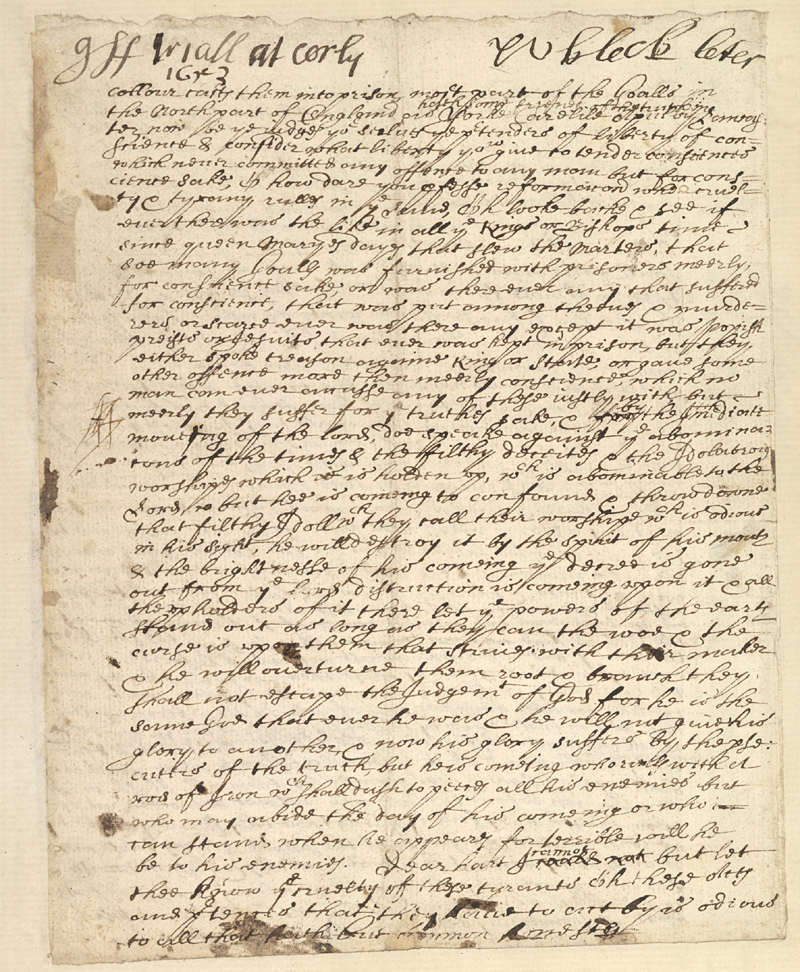 gff triall at corly
1653
collour casts them into prison, most part of the Goalls in
hath some
the North part of England as Yorke Carlile
ter now be ye Judges yo selves ye ptenders of liberty of con=
science & consider what liberty yow give to tender consciences
which never committed any offence to any man but for cons=
cience sake, Oh how dare you pfesse reformacon when cruel=
ty & tyrany rules in ye land, Oh looke backe & see if
ever there was the like in all ye Kings or Bishops time
since queen Maryes dayes that slew the Marters, that
soe many Goalls was furnished with prisoners meerly
for conscience sake, or was there ever any that suffered
for conscience, that was put among theeves & murde=
rers, or scarce ever was there any except it was popish
preists or Jesuits that ever was kept in prison, but they
either spoke treason against King or State, or gave some
other offence more then meerly conscience, which no
man can ever accuse any of these justly with, but
meerly they suffer for ye truthes sake, & the Imediate
moveing of the lord, doe speake against ye abomina=
cons of the times & the filthy deceites & the Idolatrous
worships which is holden up, wch is abominable to the
Lord, but hee is comeing to confound & throw downe
that filthy Idoll wch they call their worshipe wch is odious
in his sight, he will destroy it by the spirit of his mouth
& the brightnesse of his comeing ye decree is gone
out from ye lord distruction is comeing upon it & all
the upholders of it there let ye powers of the earth
stand out as long as they can the woe & the
curse is upon them that strives with their maker
& he will overturne them root & branch they
shall not escape the Judgemt of God for he is the
same God that ever he was & he will not give his
glory to another, & now his glory suffers by the pse=
cuters of the truth but he is comeing who rules with a
rod of Iron wch shall dash to peeces all his enemies but
who may abide the day of his comeing or who
can stand when he appeares for terrible will he
be to his enemies. Dear hart I cannot but let
thee know ye cruelty of these tyrants Oh these
and that they to act by is odious
to all that hath but common honesty